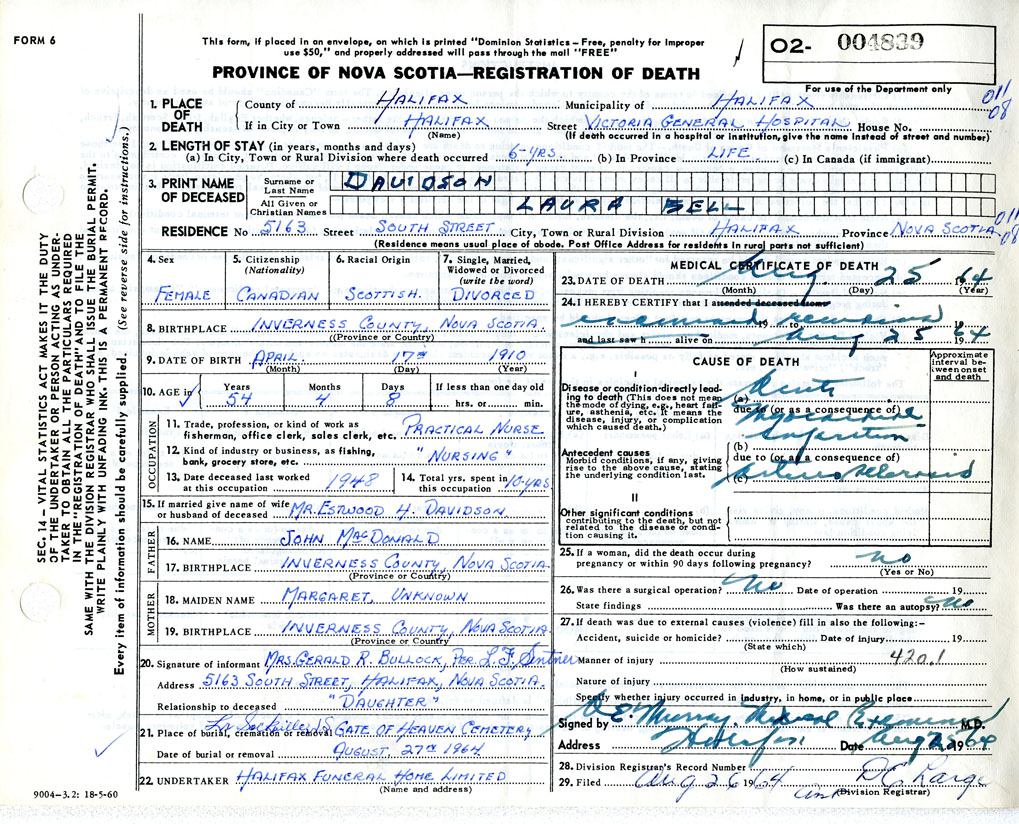 FORM 6
This form, if placed in an envelope, on which is printed "Dominion Statistics – Free, penalty for improper
use $50," and properly addressed will pass through the mail "FREE"
O2- 004839
For use of the Department only
PROVINCE OF NOVA SCOTIA—REGISTRATION OF DEATH
011
08
1. PLACE OF DEATH
County of HALIFAX Municipality of HALIFAX
If in City or Town HALIFAX Street VICTORIA GENERAL HOSPITAL House No.
(Name) (If death occurred in a hospital or institution, give the name instead of street and number)
2. LENGTH OF STAY (in years, months and days)
(a) In City, Town or Rural Division where death occurred 6-YRS. (b) In Province LIFE (c) In Canada (if immigrant)
3. PRINT NAME OF DECEASED
Surname or Last Name DAVIDSON
All Given or Christian Names LAURA BELL
011
08
RESIDENCE No 5163 Street SOUTH STREET City, Town or Rural Division HALIFAX Province NOVA SCOTIA
(Residence means usual place of abode. Post Office Address for residents in rural parts not sufficient)
4. Sex
FEMALE
5. Citizenship
(Nationality)
CANADIAN
6. Racial Origin
SCOTTISH.
7. Single, Married,
Widowed or Divorced
(write the word)
DIVORCED
8. BIRTHPLACE INVERNESS COUNTY, NOVA SCOTIA.
((Province or Country)
9. DATE OF BIRTH APRIL 17TH 1910
(Month) (Day) (Year)
10. AGE in
Years 54
Months 4
Days 8
If less than one day old
hrs. or min.
OCCUPATION
11. Trade, profession, or kind of work as
fisherman, office clerk, sales clerk, etc. PRACTICAL NURSE
12. Kind of industry or business, as fishing,
bank, grocery store, etc. "NURSING"
13. Date deceased last worked
at this occupation 1948
14. Total yrs. spent in
this occupation 10-YRS
15. If married give name of wife
or husband of deceased MR. ESTWOOD H. DAVIDSON
FATHER
16. NAME JOHN MACDONALD
17. BIRTHPLACE INVERNESS COUNTY, NOVA SCOTIA
(Province or Country)
MOTHER
18. MAIDEN NAME MARGARET, UNKNOWN
19. BIRTHPLACE INVERNESS COUNTY, NOVA SCOTIA.
(Province or Country)
20. Signature of informant MRS. GERALD R. BULLOCK, PER L. F.
Address 5163 SOUTH STREET, HALIFAX, NOVA SCOTIA.
Relationship to deceased "DAUGHTER"
21. Place of burial, cremation or removal GATE OF HEAVEN CEMETERY
Date of burial or removal AUGUST, 27TH 1964
22. UNDERTAKER HALIFAX FUNERAL HOME LIMITED
(Name and address)
MEDICAL CERTIFICATE OF DEATH
23. DATE OF DEATH Aug 25 1964
(Month) (Day) (Year)
24. I HEREBY CERTIFY that I attended deceased from
examined remains 19 to 19
and last saw h alive on Aug 25 1964
CAUSE OF DEATH
Approximate
interval be-
tween onset
and death
I
Disease or condition directly lead-
ing to death (This does not mean
the mode of dying, e.g., heart fail-
ure, asthenia, etc. It means the
disease, injury, or complication
which caused death.)
(a) Acute
due to (or as a consequence of)
Myocardial
Infarction
Antecedent causes
Morbid conditions, if any, giving
rise to the above cause, stating
the underlying condition last.
(b)
due to (or as a consequence of)
(c) Arteriosclerosis
II
Other significant conditions
contributing to the death, but not
related to the disease or condi-
tion causing it.
25. If a woman, did the death occur during
pregnancy or within 90 days following pregnancy? no
(Yes or No)
26. Was there a surgical operation? No Date of operation 19
State findings Was there an autopsy? No
27. If death was due to external causes (violence) fill in also the following:–
Accident, suicide or homicide? Date of injury 19
(State which)
Manner of injury 420.1
(How sustained)
Nature of injury
Specify whether injury occurred in industry, in home, or in public place
Signed by E. Murray, Medical Examiner M.D.
Address Halifax Date Aug 1964
28. Division Registrar's Record Number
29. Filed Aug 26 1964 D C
(Division Registrar)
SEC. 14 – VITAL STATISTICS ACT MAKES IT THE DUTY
OF THE UNDERTAKER OR PERSON ACTING AS UNDER-
TAKER TO OBTAIN ALL THE PARTICULARS REQUIRED
IN THE "REGISTRATION OF DEATH" AND TO FILE THE
SAME WITH THE DIVISION REGISTRAR WHO SHALL ISSUE THE BURIAL PERMIT.
WRITE PLAINLY WITH UNFADING INK. THIS IS A PERMANENT RECORD.
Every item of information should be carefully supplied. (See reverse side for instructions.)
9004–3.2: 18-5-60